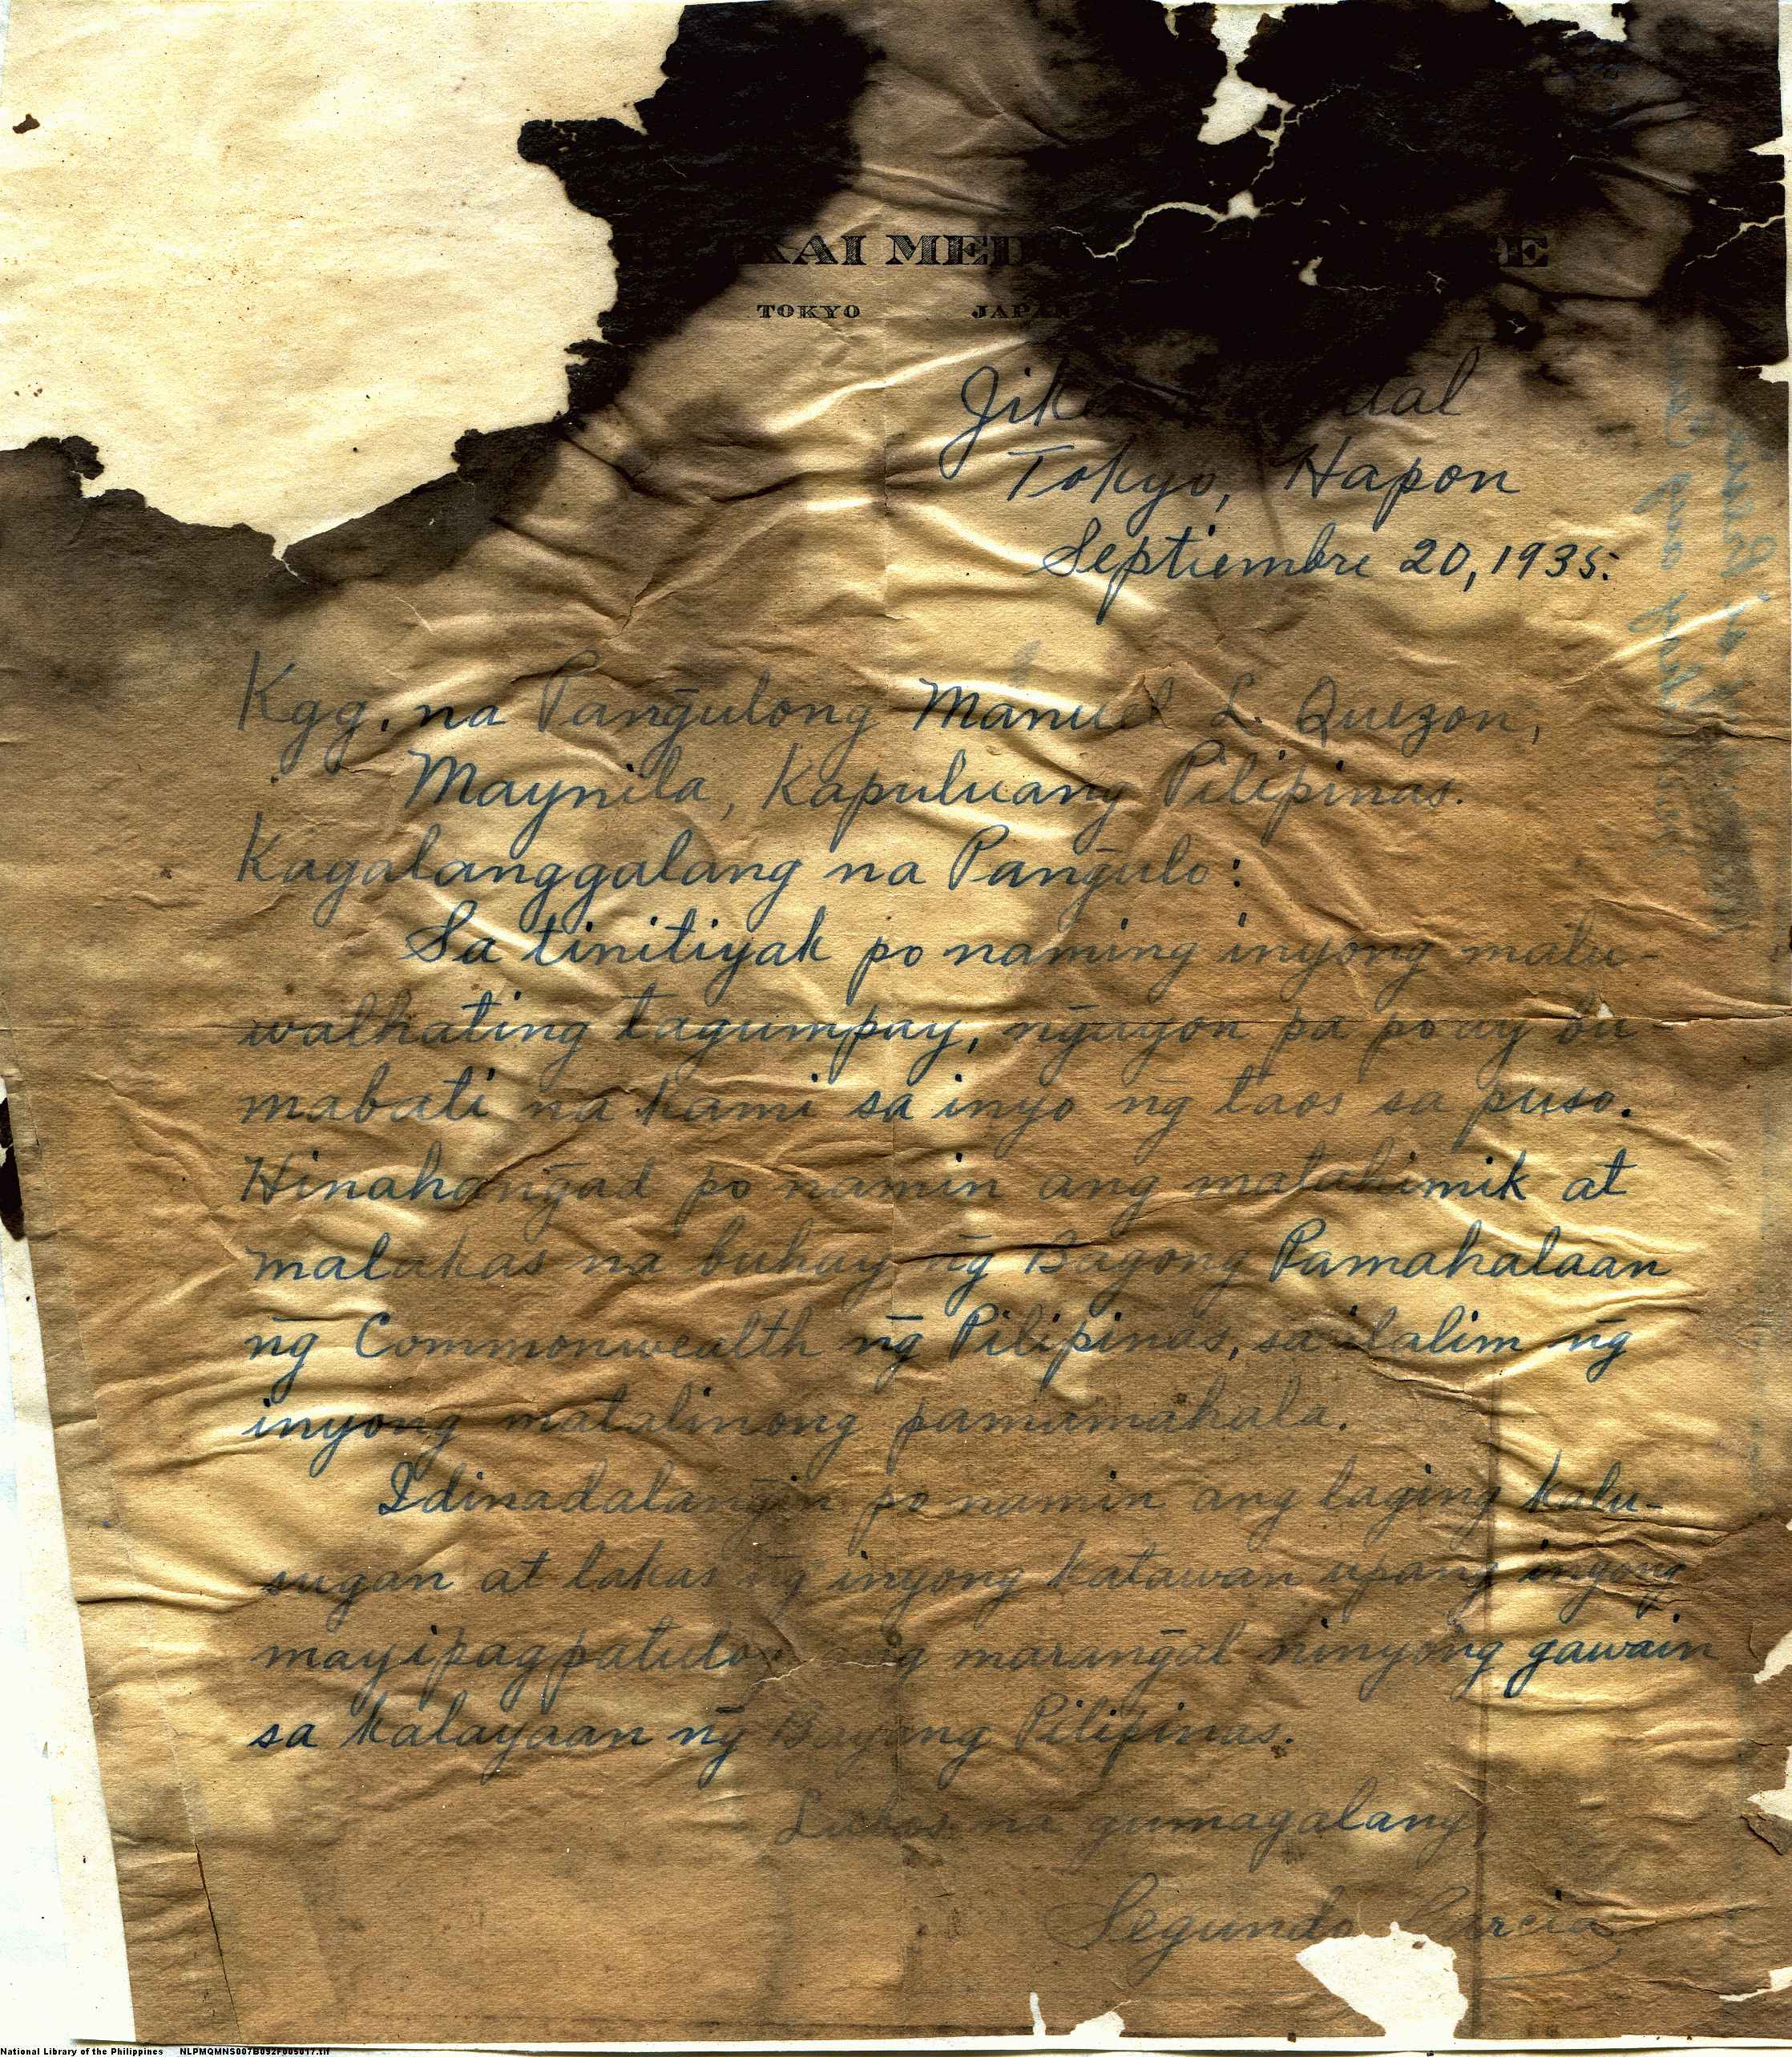 KAI MED
TOKYO JAPAN
Tokyo, Hapon
Septiembre 20, 1935.
Kgg. na Pang̃ulong Manuel L. Quezon,
Maynila, Kapuluang Pilipinas.
Kagalanggalang na Pang̃ulo:
Sa tinitiyak po naming inyong malu-
walhating tagumpay, ng̃ayon pa po ay bu
mabati na kami sa inyo ng taos sa puso.
Hinahang̃ad po namin ang matahimik at
malakas na buhay ng̃ Bagong Pamahalaan
ng̃ Commonwealth ng̃ Pilipinas, sa ilalim ng̃
inyong matalinong pamamahala.
Idinadalang̃in po namin ang laging kalu-
sugan at lakas ng̃ inyong katawan upang inyong
mayipagpatuloy ang marang̃al ninyong gawain
sa kalayaan ng̃ Bayang Pilipinas.
Lubos na gumagalang,
Segundo Garcia
National Library of the Philippines NLPMQMNS007B092F005017.tif